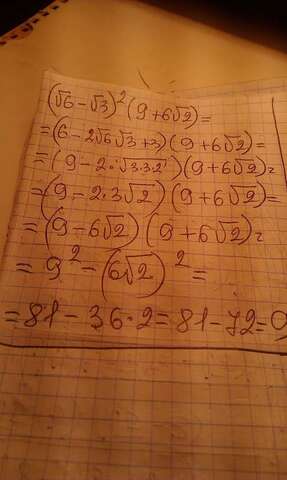 (√6-√3)²(9+6√2)=
=(6-2√6√3+3)(9+6√2)=
=(9-2·√3·3·2)(9+6√2)=
=(9-2·3√2)(9+6√2)=
=(9-6√2)(9+6√2)=
=9²-(6√2)²=
=81-36·2=81-72=9